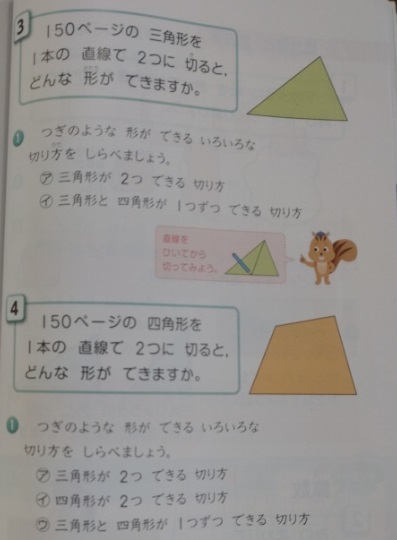 3
150ページの 三角形を
1本の 直線で 2つに 切ると,
どんな 形が できますか。
1 つぎのような 形が できる いろいろな
切り方を しらべましょう。
㋐ 三角形が 2つ できる 切り方
㋑ 三角形と 四角形が 1つずつ できる 切り方
直線を
ひいてから
切ってみよう。
4
150ページの 四角形を
1本の 直線で 2つに 切ると,
どんな 形が できますか。
1 つぎのような 形が できる いろいろな
切り方を しらべましょう。
㋐ 三角形が 2つ できる 切り方
㋑ 四角形が 2つ できる 切り方
㋒ 三角形と 四角形が 1つずつ できる 切り方